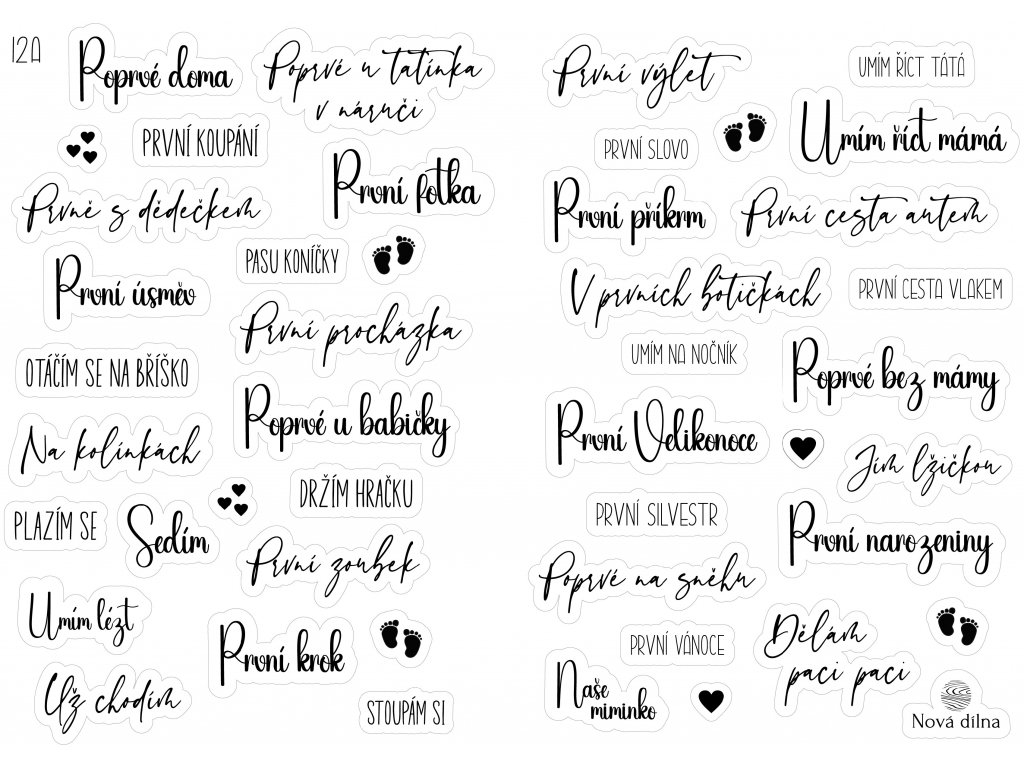 12A
Poprvé doma
Poprvé u tatínka
v náručí
PRVNÍ KOUPÁNÍ
První fotka
Prvně s dědečkem
PASU KONÍČKY
První úsměv
První procházka
OTÁČÍM SE NA BŘÍŠKO
Poprvé u babičky
Na kolínkách
DRŽÍM HRAČKU
PLAZÍM SE
Sedím
První zoubek
Umím lézt
První krok
Už chodím
STOUPÁM SI
První výlet
UMÍM ŘÍCT TÁTA
Umím říct máma
PRVNÍ SLOVO
První příkrm
První cesta autem
V prvních botičkách
PRVNÍ CESTA VLAKEM
UMÍM NA NOČNÍK
Poprvé bez mámy
První Velikonoce
Jím lžičkou
PRVNÍ SILVESTR
První narozeniny
Poprvé na sněhu
Dělám
paci paci
PRVNÍ VÁNOCE
Naše
miminko
Nová dílna